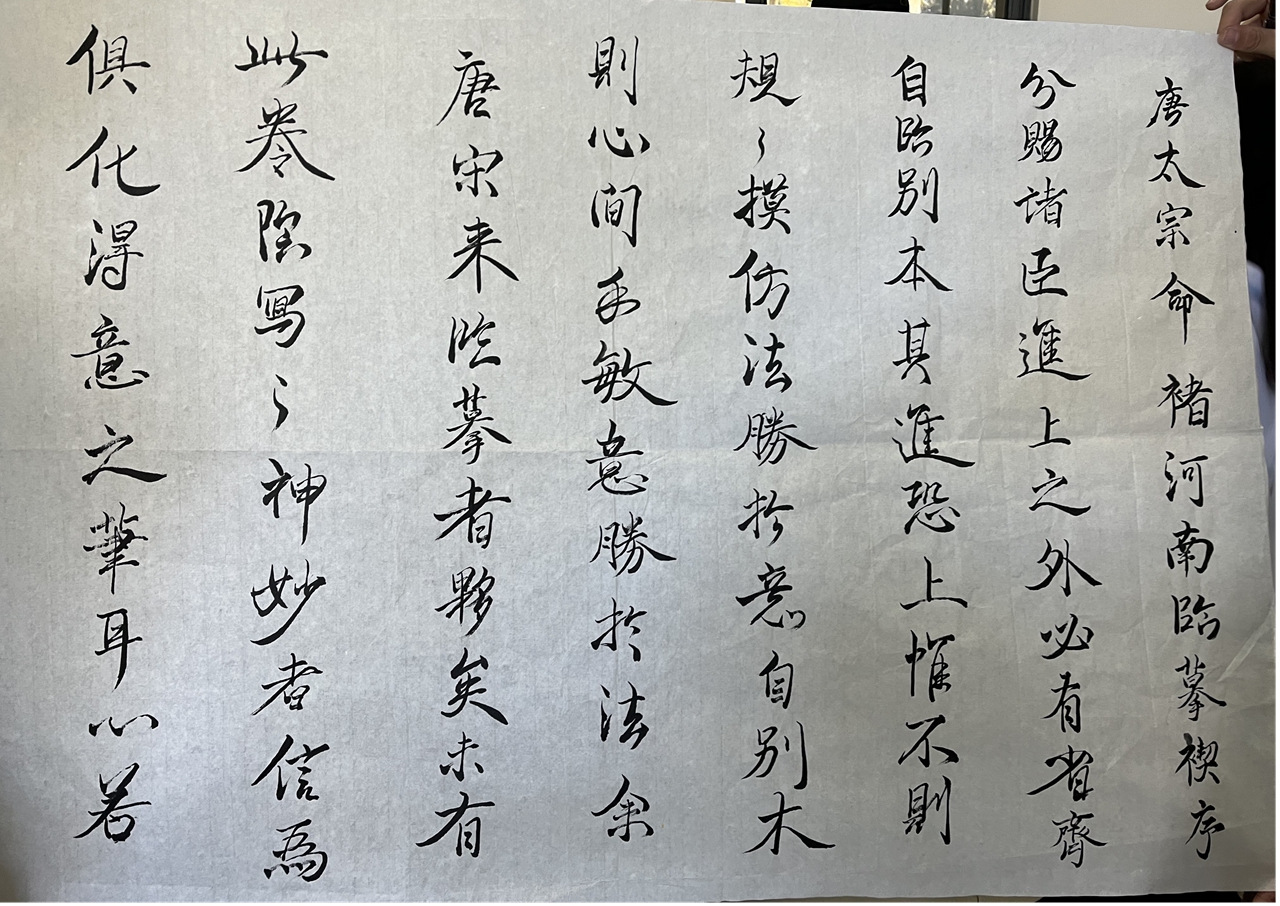 唐太宗命褚河南臨摹禊序
分賜諸臣進上之外必有省齊
自临別本其進恐上惟不則
規〻摸仿法勝於意自別木
則心间手敏意勝於法余
唐宋来临摹者夥矣未有
此卷陰寫〻神妙者信為
俱化淂意之筆耳心若